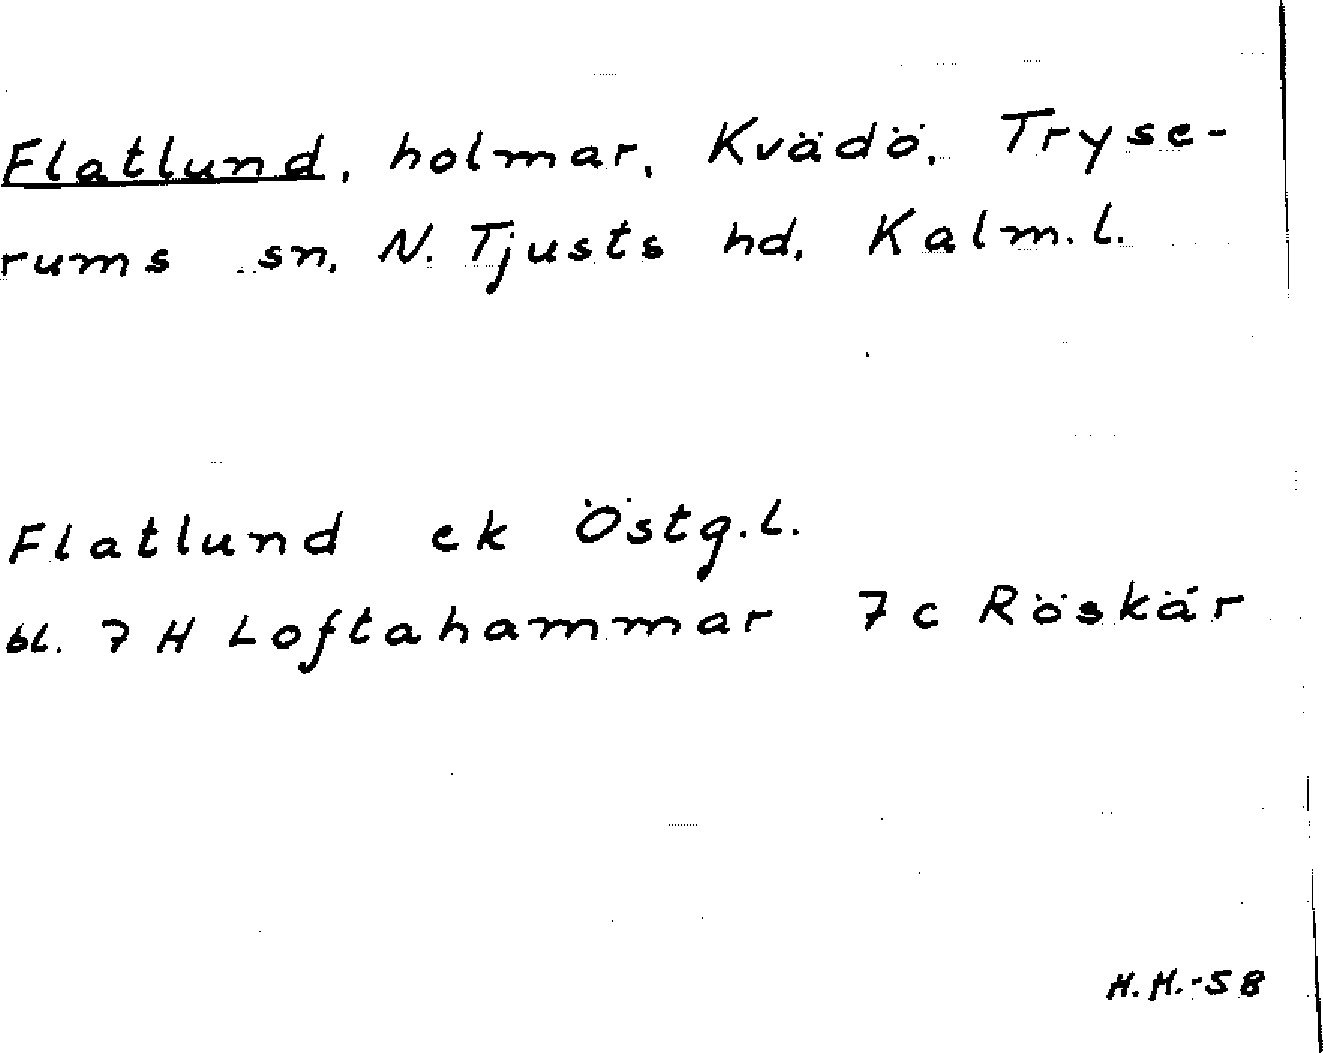 Flatlund, holmar, Kvädö, Tryse-
rums sn, N. Tjusts hd, Kalm.l.
Flatlund ek Östg.l.
bl. 7 H Loftahammar 7 c Röskär
H.H.-58